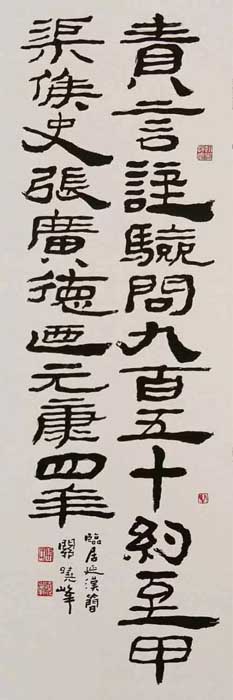 責言註驗問九百五十約至甲
渠候史張廣德迺元康四年
臨居延漢簡
關曉峰